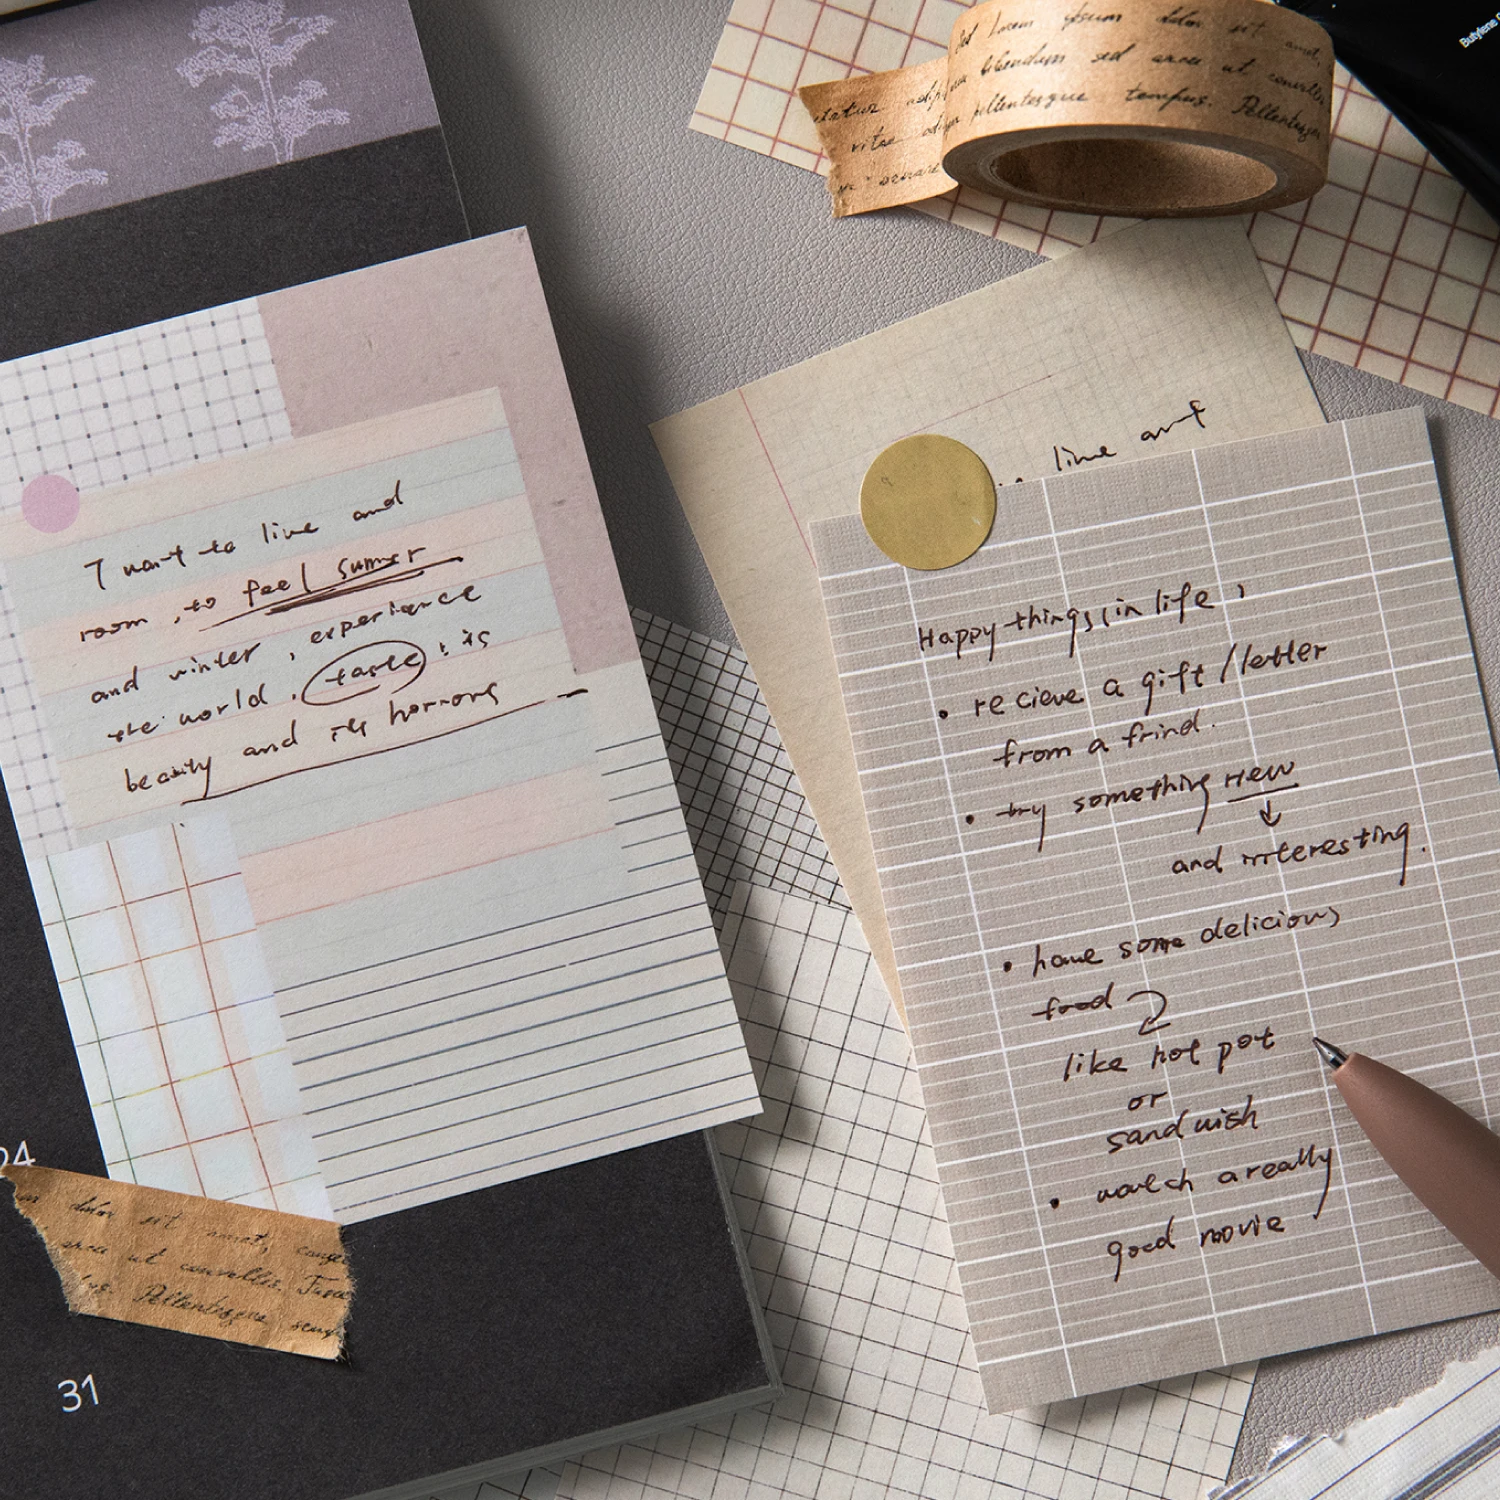 I want to live and
room, to feel summer
and winter, experience
the world, taste! its
beauty and its horrors
24
31
dolor sit amet,
arcu ut convallis. Fusce
Pellentesque
Sed Lorem ipsum dolor sit amet,
bibendum sed arcu ut convallis
pellentesque tempus. Pellentesque
vitae
ornare
live and
Happy things (in life,
• recieve a gift / letter
from a frind.
• try something new
↓
and interesting.
• have some delicious
food
like hot pot
or
sandwish
• watch a really
good movie
Butylene